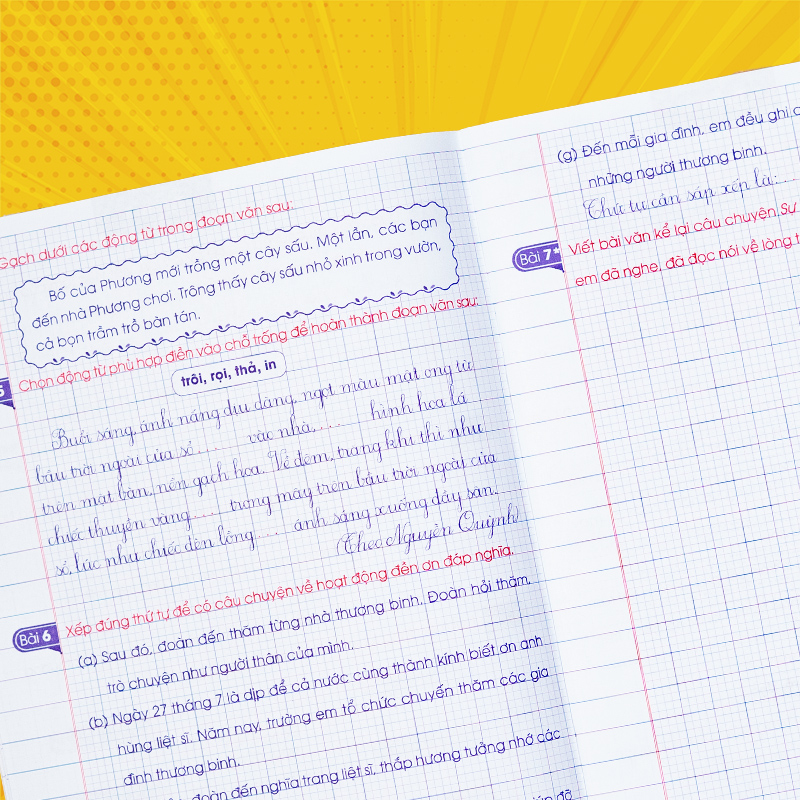 Gạch dưới các động từ trong đoạn văn sau:
Bố của Phương mới trồng một cây sấu. Một lần, các bạn
đến nhà Phương chơi. Trông thấy cây sấu nhỏ xinh trong vườn,
cả bọn trầm trồ bàn tán.
5
Chọn động từ phù hợp điền vào chỗ trống để hoàn thành đoạn văn sau:
trôi, rọi, thả, in
Buổi sáng, ánh nắng dịu dàng, ngọt màu mật ong từ
bầu trời ngoài cửa sổ.... vào nhà,.... hình hoa lá
trên mặt bàn, nền gạch hoa. Về đêm, trăng khi thì như
chiếc thuyền vàng.... trong mây trên bầu trời ngoài cửa
sổ, lúc như chiếc đèn lồng.... ánh sáng xuống đầy sân.
(Theo Nguyễn Quỳnh)
Bài 6
Xếp đúng thứ tự để có câu chuyện về hoạt động đền ơn đáp nghĩa.
(a) Sau đó, đoàn đến thăm từng nhà thương binh. Đoàn hỏi thăm,
trò chuyện như người thân của mình.
(b) Ngày 27 tháng 7 là dịp để cả nước cùng thành kính biết ơn anh
hùng liệt sĩ. Năm nay, trường em tổ chức chuyến thăm các gia
đình thương binh.
đoàn đến nghĩa trang liệt sĩ, thắp hương tưởng nhớ các
đỡ
(g) Đến mỗi gia đình, em đều ghi
những người thương binh.
Thứ tự cần sắp xếp là:
Bài 7*
Viết bài văn kể lại câu chuyện. Sự
em đã nghe, đã đọc nói về lòng